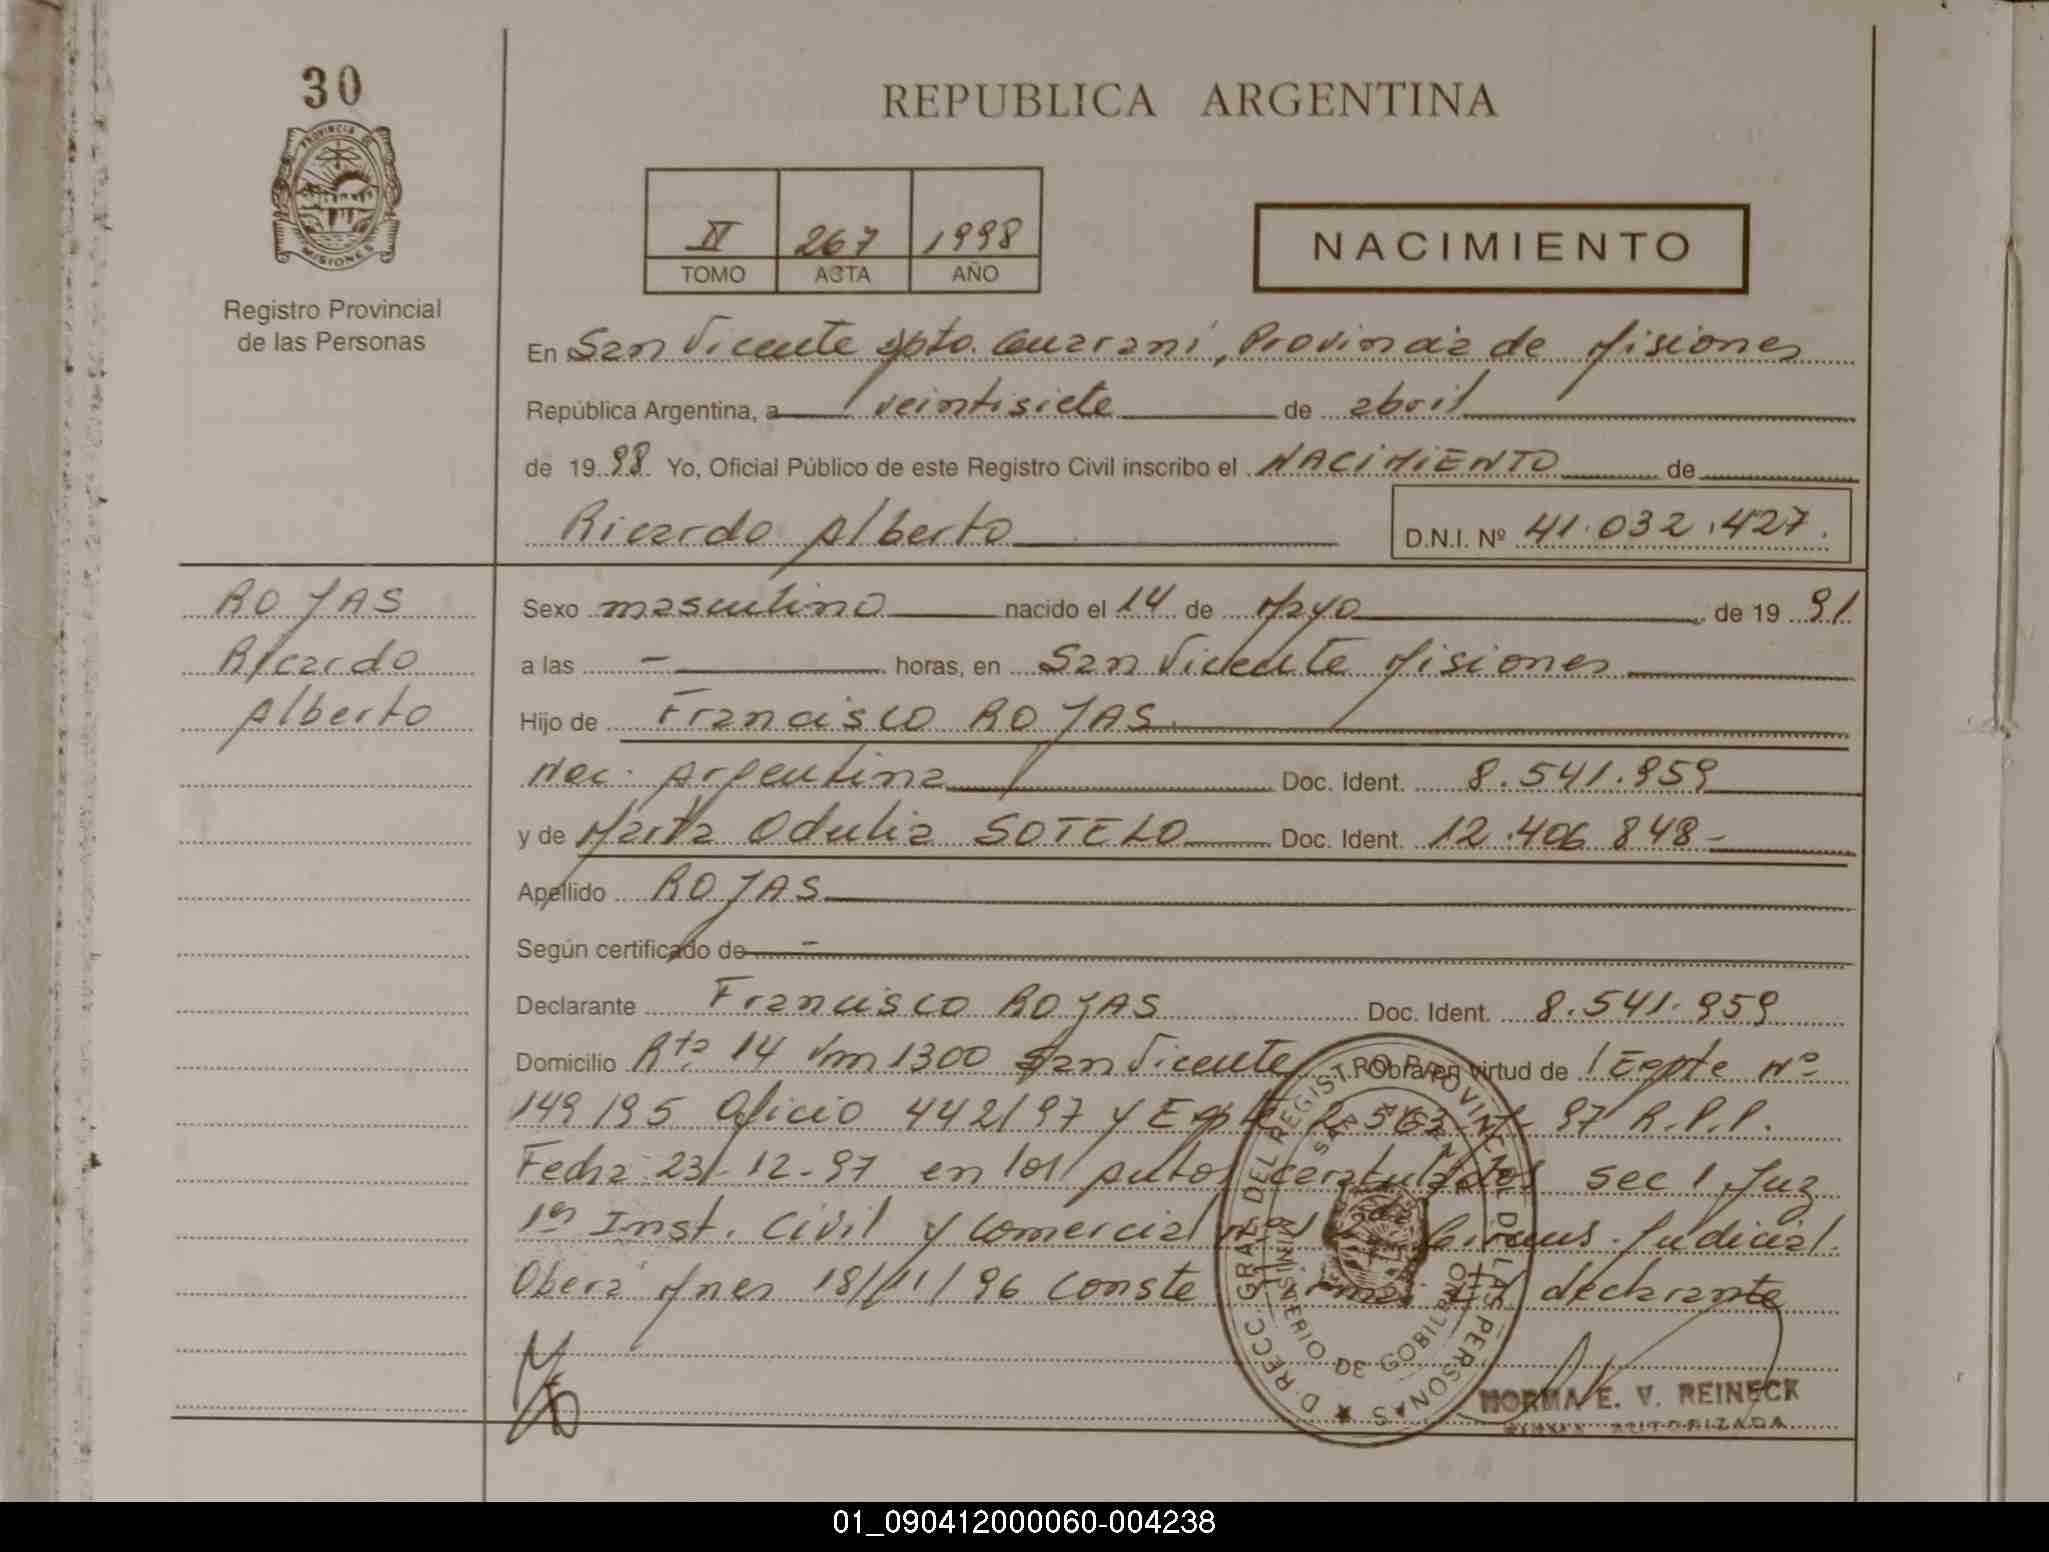 30
PROVINCIA DE
MISIONES
Registro Provincial
de las Personas
REPUBLICA ARGENTINA
II 267 1998
TOMO ACTA AÑO
NACIMIENTO
En San Vicente Dpto. Guaraní, Provincia de Misiones
República Argentina, a veintisiete de abril
de 19 98 Yo, Oficial Público de este Registro Civil inscribo el NACIMIENTO de
Ricardo Alberto D.N.I. Nº 41.032.427.
ROJAS
Ricardo
Alberto
Sexo masculino nacido el 14 de Mayo de 19 91
a las - horas, en San Vicente Misiones
Hijo de Francisco ROJAS
Nac. Argentina Doc. Ident. 8.541.959
y de Marta Odulia SOTELO Doc. Ident. 12.406 848-
Apellido ROJAS
Según certificado de -
Declarante Francisco ROJAS Doc. Ident. 8.541.959
Domicilio Rta 14 km 1300 San Vicente Obra en virtud de / Expte Nº
149/95 Oficio 442/97 y Expte 97 R.P.P.
Fecha 23-12-97 en los autos caratulados sec 1 Juz
1ª Inst. Civil y Comercial Circuns. Judicial.
Oberá Mnes 18/11/96 Conste el declarante
NORMA E. V. REINECK
FIRMA AUTORIZADA
DIRECC GRAL DEL REGISTRO PROVINCIAL DE LAS PERSONAS
MINISTERIO DE GOBIERNO
01_090412000060-004238